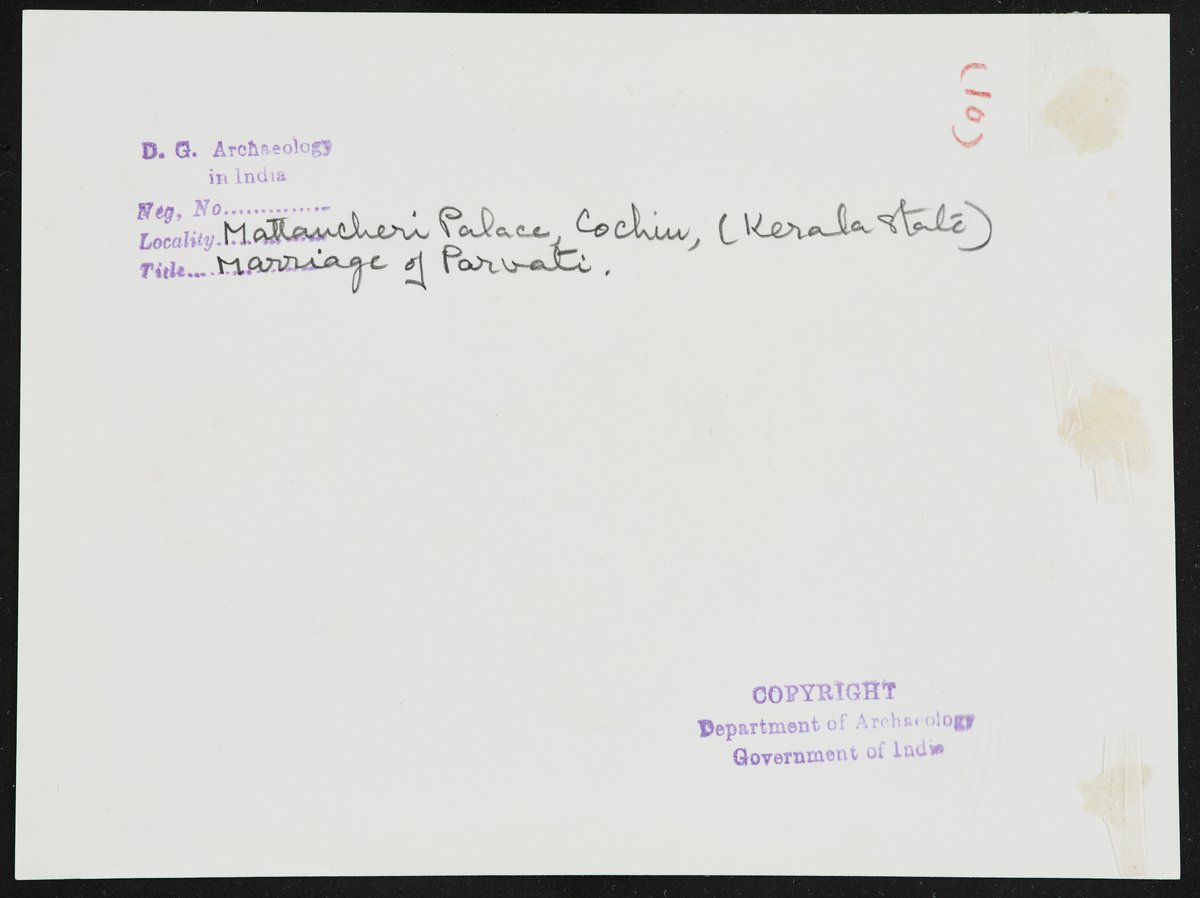 (91)
D. G. Archaeology
in India
Neg, No..............
Locality..... Mattancheri Palace, Cochin, (Kerala State)
Title..... Marriage of Parvati.
COPYRIGHT
Department of Archaeology
Government of India